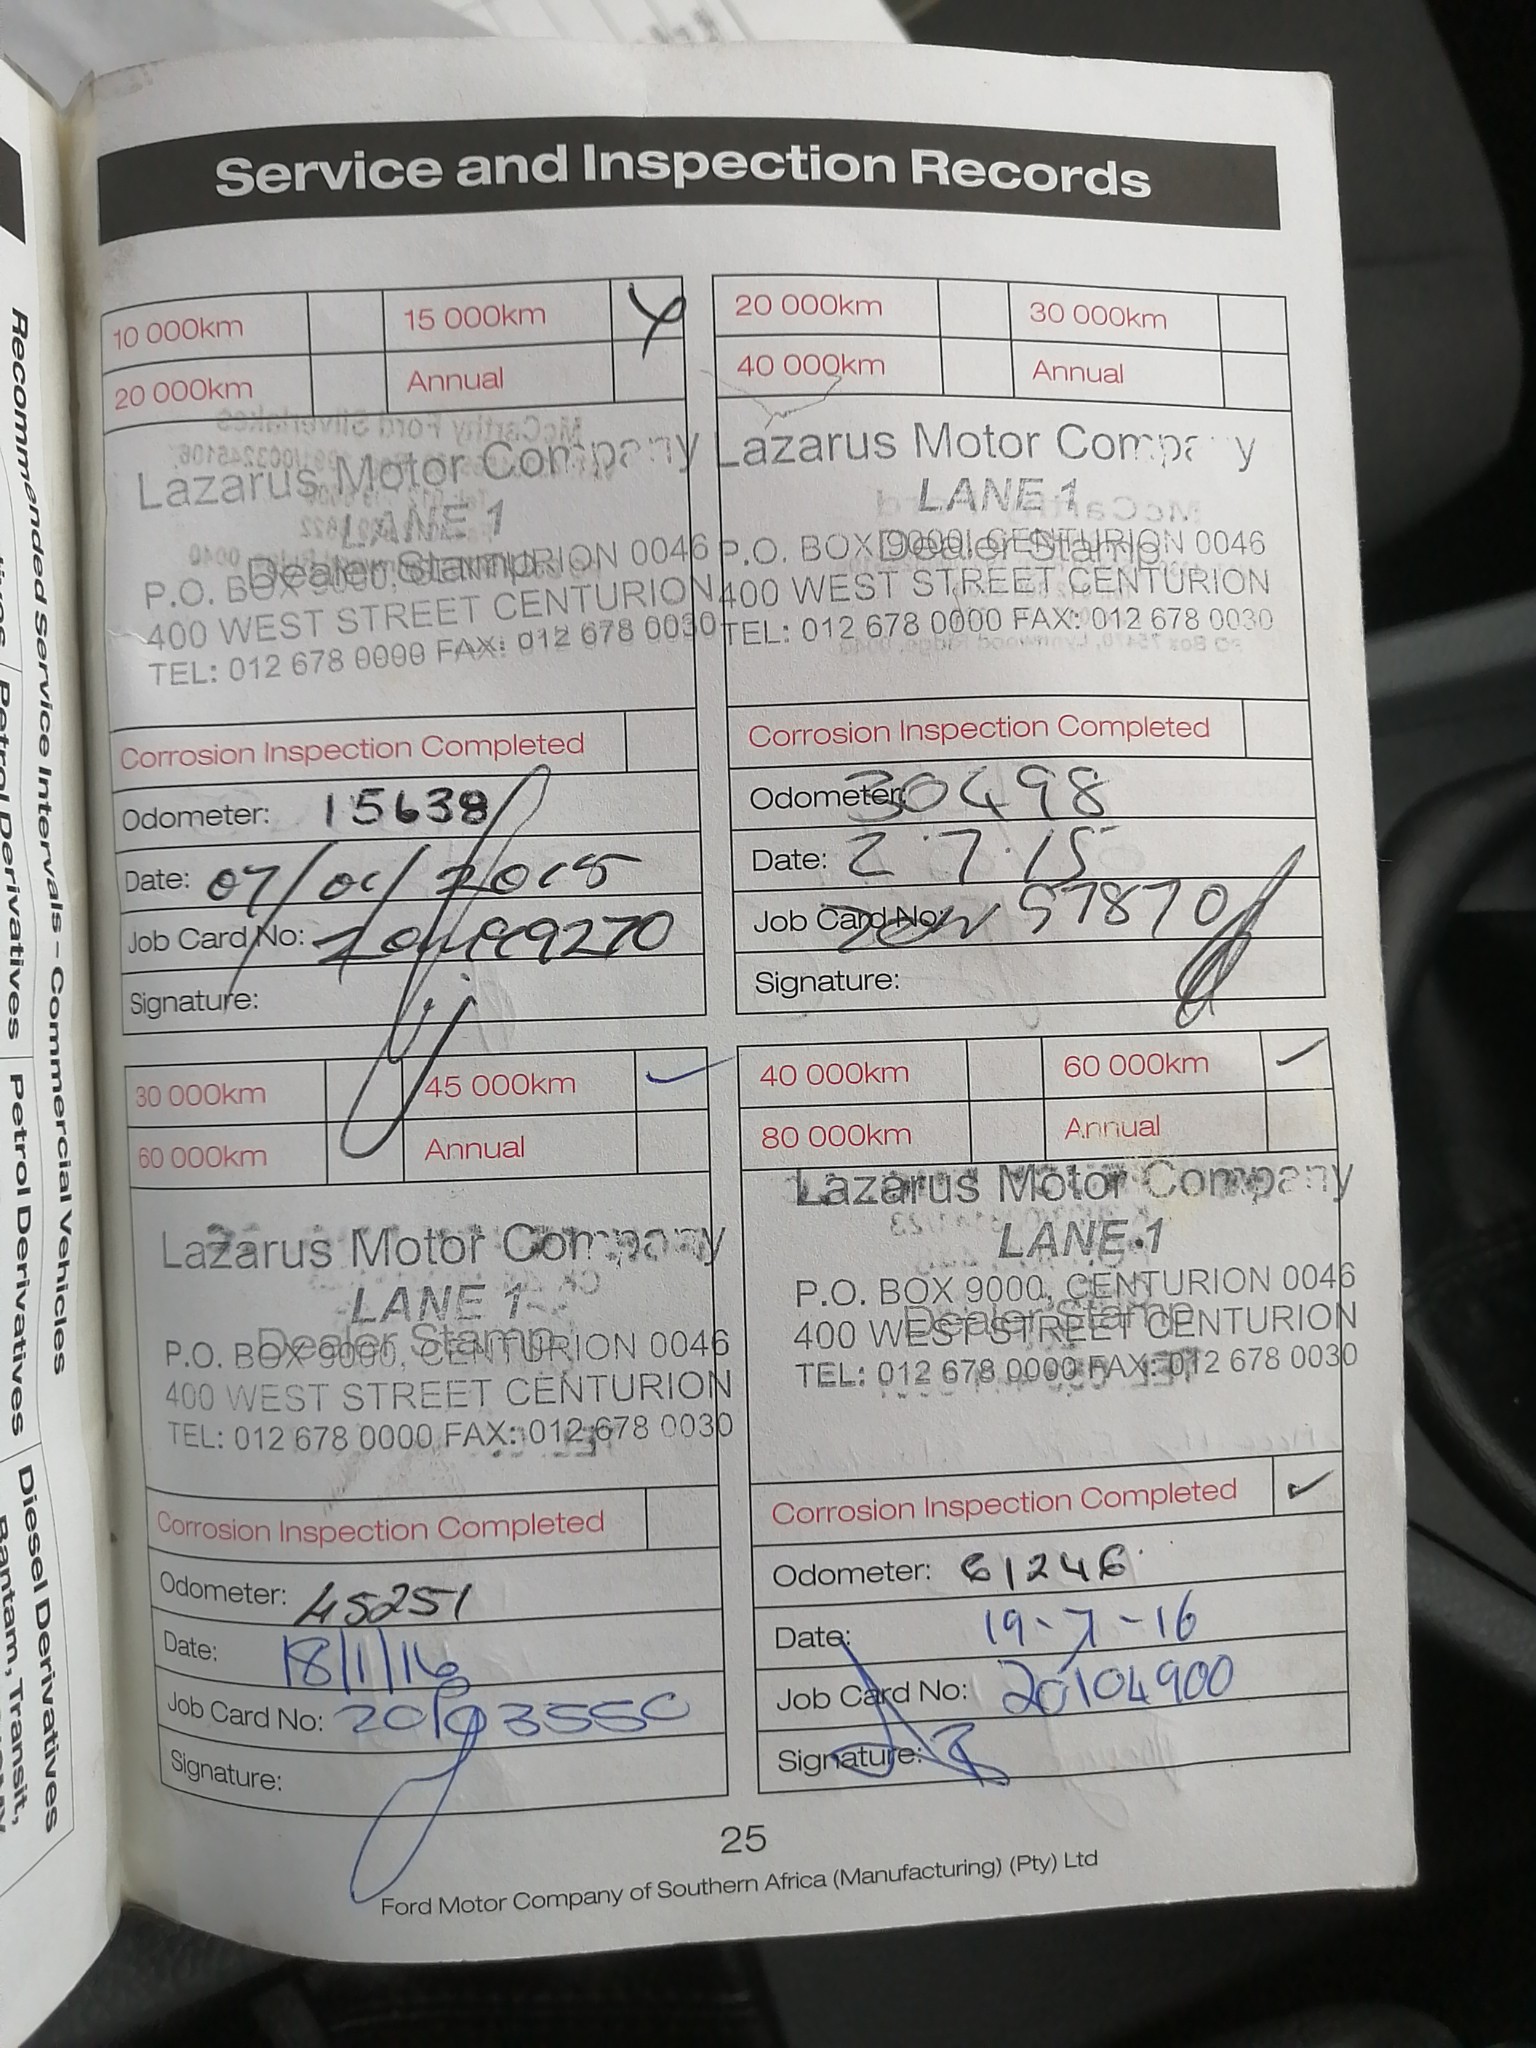 Service and Inspection Records
10 000km 15 000km
20 000km Annual
Lazarus Motor Company
LANE 1
Dealer Stamp
P.O. BOX 9000, CENTURION 0046
400 WEST STREET CENTURION
TEL: 012 678 0000 FAX: 012 678 0030
Corrosion Inspection Completed
Odometer: 15638
Date: 07/01/2015
Job Card No:
Signature:
20 000km 30 000km
40 000km Annual
Lazarus Motor Company
LANE 1
Dealer Stamp
P.O. BOX 9000, CENTURION 0046
400 WEST STREET CENTURION
TEL: 012 678 0000 FAX: 012 678 0030
Corrosion Inspection Completed
Odometer: 30498
Date: 2.7.15
Job Card No: 57870
Signature:
30 000km 45 000km
60 000km Annual
Lazarus Motor Company
LANE 1
Dealer Stamp
P.O. BOX 9000, CENTURION 0046
400 WEST STREET CENTURION
TEL: 012 678 0000 FAX: 012 678 0030
Corrosion Inspection Completed
Odometer: 45251
Date: 18/1/16
Job Card No:
Signature:
40 000km 60 000km
80 000km Annual
Lazarus Motor Company
LANE 1
P.O. BOX 9000, CENTURION 0046
Dealer Stamp
400 WEST STREET CENTURION
TEL: 012 678 0000 FAX: 012 678 0030
Corrosion Inspection Completed
Odometer: 61246
Date: 19-7-16
Job Card No: 20104900
Signature:
25
Ford Motor Company of Southern Africa (Manufacturing) (Pty) Ltd
Recommended Service Intervals - Commercial Vehicles
Petrol Derivatives Petrol Derivatives Diesel Derivatives
Bantam, Transit,